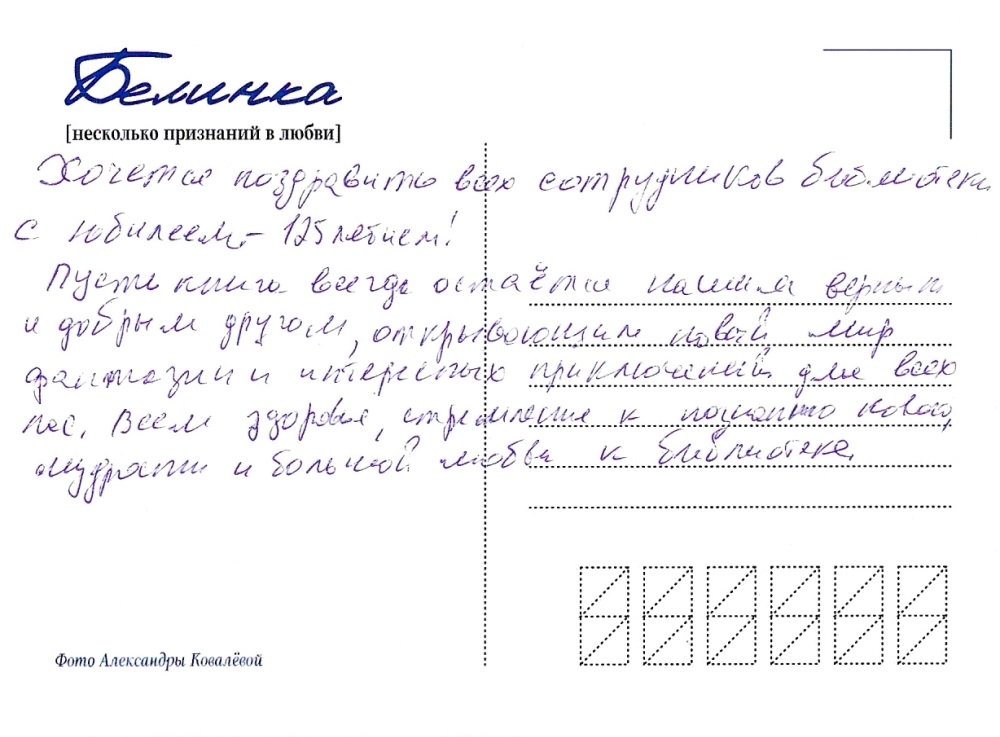 Белинка
[несколько признаний в любви]
Хочется поздравить всех сотрудников библиотеки
с юбилеем – 125летием!
Пусть книга всегда остаётся нашим верным
и добрым другом, открывающим новый мир
фантазии и интересных приключений для всех
нас. Всем здоровья, стремления к познанию нового,
мудрости и большой любви к библиотеке.
Фото Александры Ковалёвой